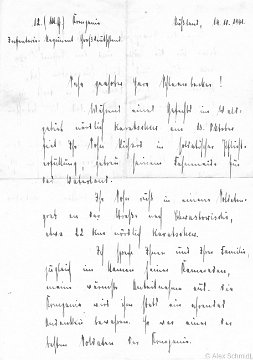 12. (MG) Kompanie
Rußland, 14.10.1941.
Infanterie-Regiment Großdeutschland
Sehr geehrter Herr
Während eines Gefechts im Wald-
gebiet nördlich Karatschew am 13. Oktober
fiel Ihr Sohn Richard in soldatischer Pflicht-
erfüllung, getreu seinem Fahneneide für
das Vaterland.
Ihr Sohn ruht in einem Soldaten-
grab an der Straße nach
etwa 22 km nördlich Karatschew.
Ich spreche Ihnen und Ihrer Familie,
zugleich im Namen seiner Kameraden,
meine wärmste Anteilnahme aus. Die
Kompanie wird ihm stets ein ehrendes
Andenken bewahren. Er war einer der
besten Soldaten der Kompanie.
© Alex Schmidt